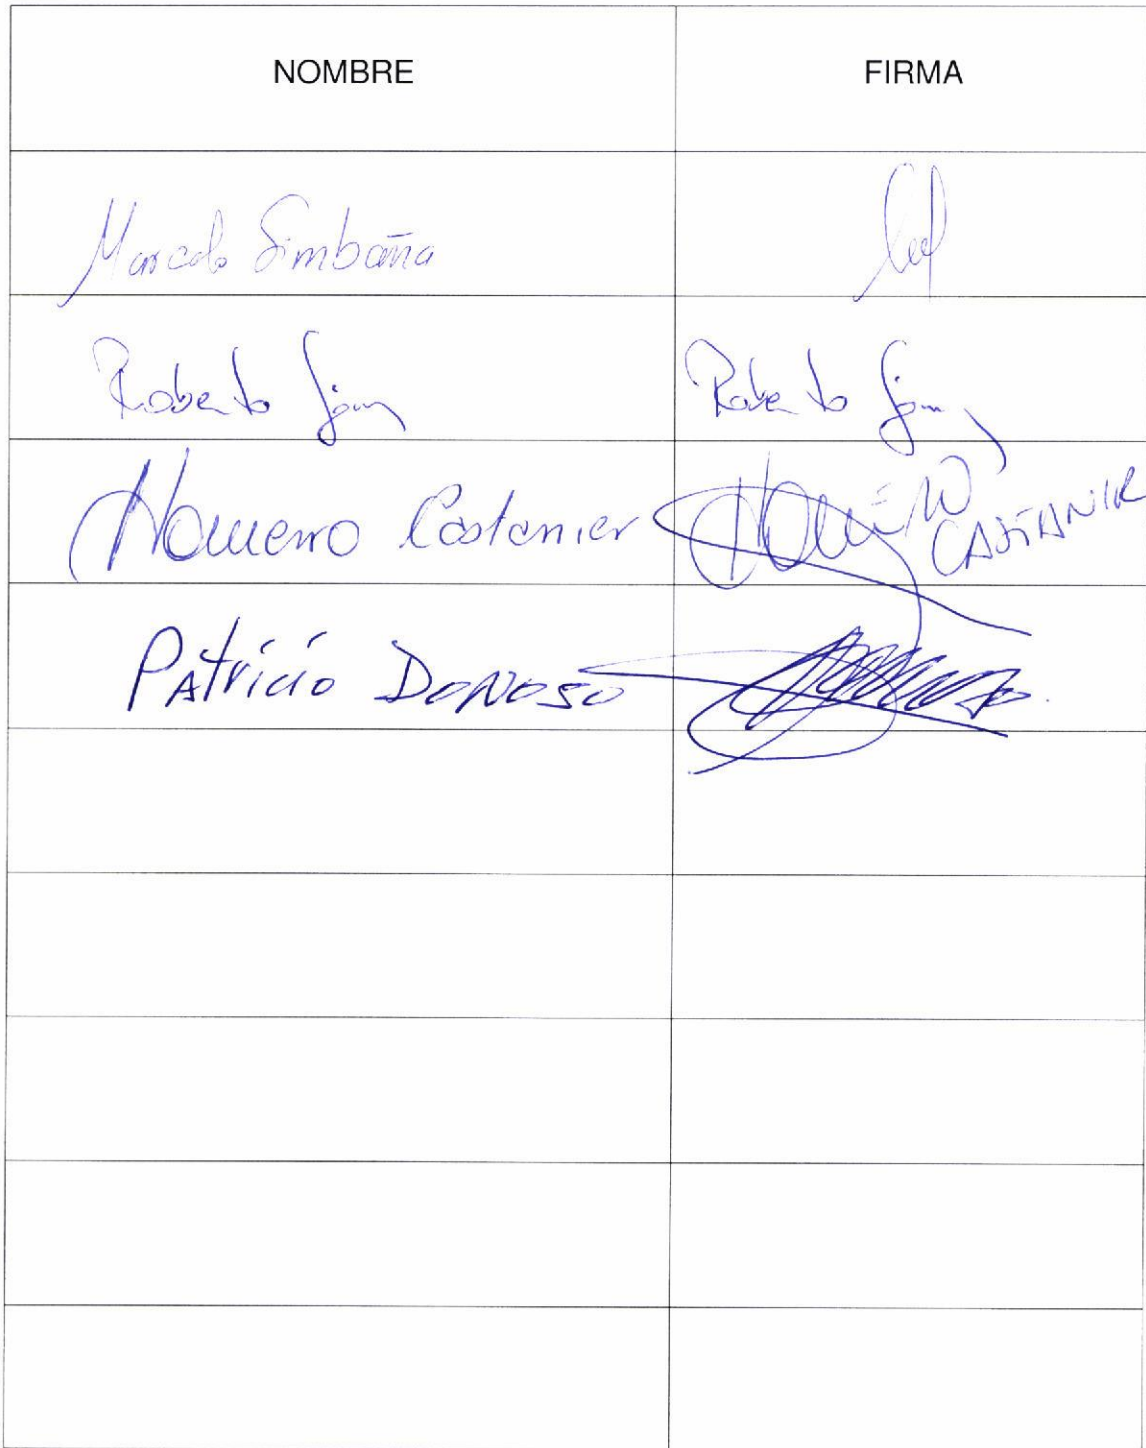 NOMBRE FIRMA
Marcelo Simbaña
Roberto Gómez Roberto Gómez
Homero Castanier Homero CASTANIER
Patricio DONOSO